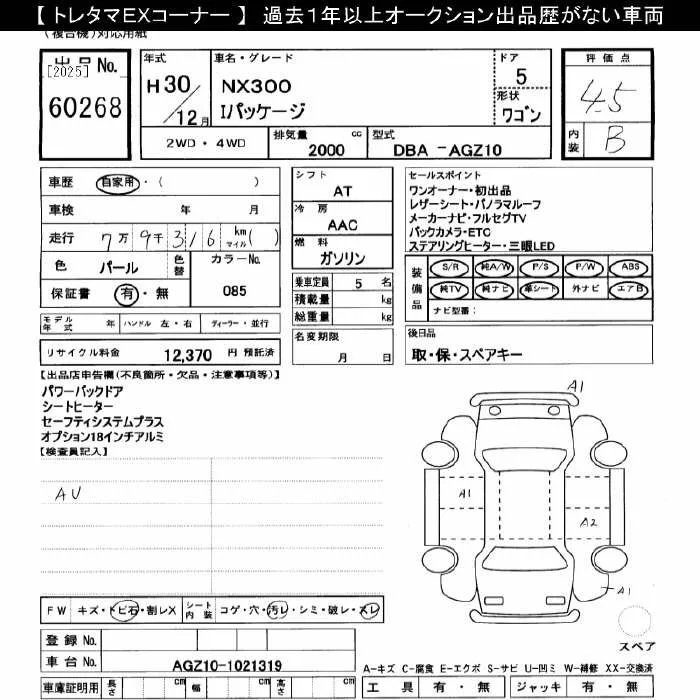 【 トレタマEXコーナー 】 過去1年以上オークション出品歴がない車両
(複合機)対応用紙
出品No.
[2025]
60268
年式
H30/12月
車名・グレード
NX300
Iパッケージ
ドア
5
形状
ワゴン
評価点
4.5
内装
B
2WD・4WD
排気量 cc
2000
型式
DBA -AGZ10
車歴 自家用・( )
車検 年 月
走行 7万9千316 km マイル( )
色 パール 色替 カラーNo.
保証書 有・無 085
シフト
AT
冷房
AAC
燃料
ガソリン
乗車定員 5 名
積載量 kg
総重量 kg
セールスポイント
ワンオーナー・初出品
レザーシート・パノラマルーフ
メーカーナビ・フルセグTV
バックカメラ・ETC
ステアリングヒーター・三眼LED
装備品
S/R 純A/W P/S P/W ABS
純TV 純ナビ 革シート 外ナビ エアB
ナビ型番:
モデル年式 年 ハンドル 左・右 ディーラー・並行
名変期限
月 日
後日品
取・保・スペアキー
リサイクル料金 12,370 円 預託済
【出品店申告欄(不良箇所・欠品・注意事項等)】
パワーバックドア
シートヒーター
セーフティシステムプラス
オプション18インチアルミ
【検査員記入】
AU
A1
A1
A2
A1
スペア
FW キズ・トビ石・割レX シート内装 コゲ・穴・汚レ・シミ・破レ・スレ
登録No.
車台No. AGZ10-1021319
A-キズ C-腐食 E-エクボ S-サビ U-凹ミ W-補修 XX-交換済
車庫証明用 長さ cm 幅 cm 高さ cm
工具 有・無 ジャッキ 有・無